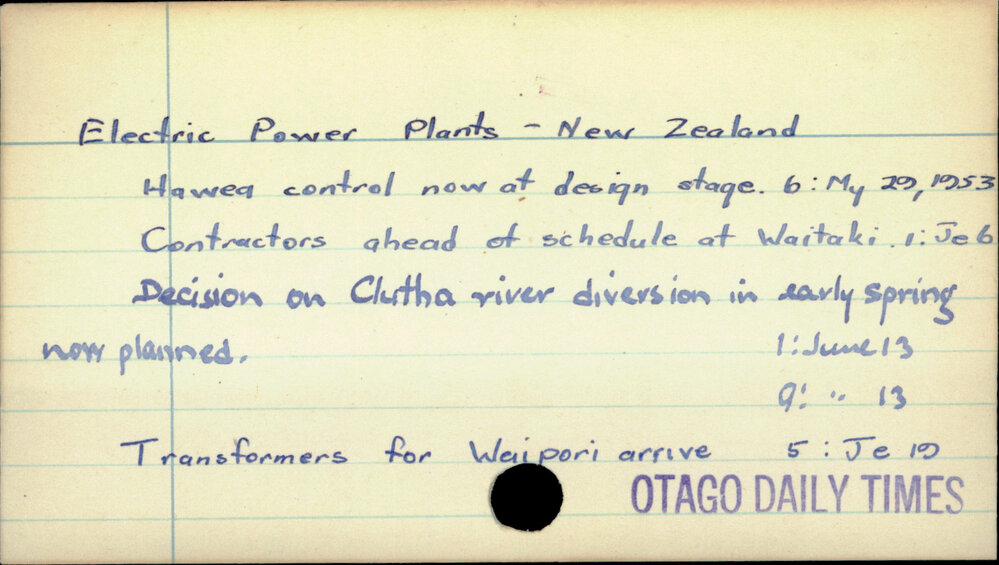 Electric Power Plants - New Zealand
Hawea control now at design stage. 6: My 29, 1953
Contractors ahead of schedule at Waitaki. 1: Je 6
Decision on Clutha river diversion in early spring
now planned. 1: June 13
9: " 13
Transformers for Waipori arrive 5: Je 19
OTAGO DAILY TIMES